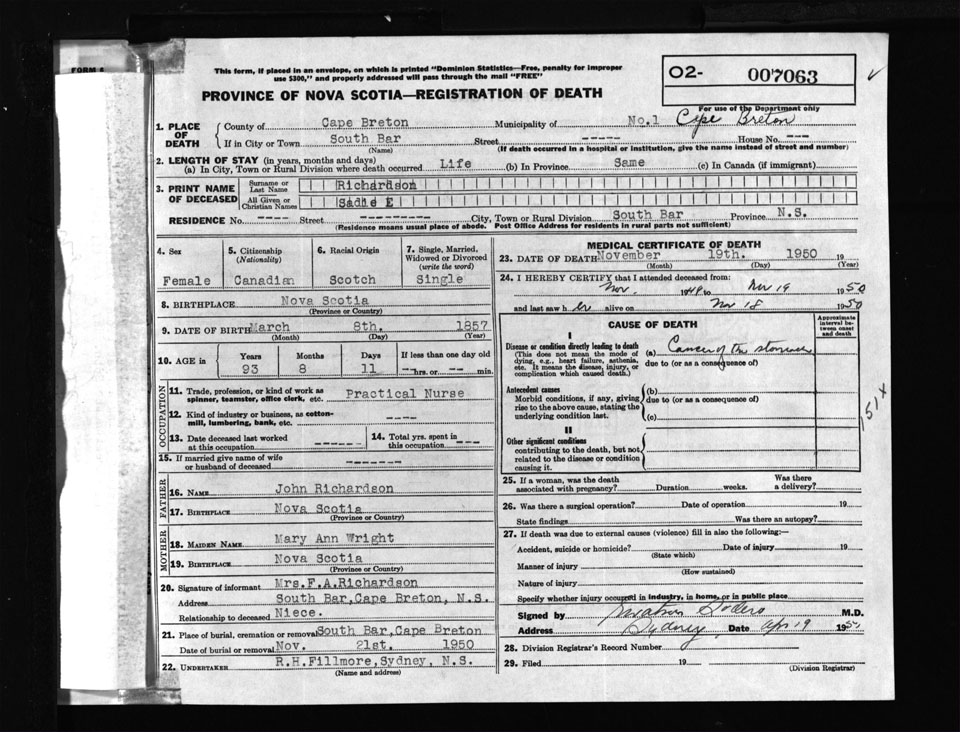 FORM 6
This form, if placed in an envelope, on which is printed "Dominion Statistics—Free, penalty for improper
use $300," and properly addressed will pass through the mail "FREE"
PROVINCE OF NOVA SCOTIA—REGISTRATION OF DEATH
O2- 007063
For use of the Department only
1. PLACE OF DEATH
County of Cape Breton Municipality of No.1 Cape Breton
If in City or Town South Bar Street ----- House No. ---
(Name) (If death occurred in a hospital or institution, give the name instead of street and number)
2. LENGTH OF STAY (in years, months and days)
(a) In City, Town or Rural Division where death occurred Life (b) In Province Same (c) In Canada (if immigrant)
3. PRINT NAME OF DECEASED
Surname or Last Name Richardson
All Given or Christian Names Sadie E
RESIDENCE No. ---- Street -------- City, Town or Rural Division South Bar Province N.S.
(Residence means usual place of abode. Post Office Address for residents in rural parts not sufficient)
4. Sex Female
5. Citizenship (Nationality) Canadian
6. Racial Origin Scotch
7. Single, Married, Widowed or Divorced (write the word) Single
8. BIRTHPLACE Nova Scotia
(Province or Country)
9. DATE OF BIRTH March 8th. 1857
(Month) (Day) (Year)
10. AGE in Years Months Days If less than one day old
93 8 11 -- hrs. or -- min.
OCCUPATION
11. Trade, profession, or kind of work as spinner, teamster, office clerk, etc. Practical Nurse
12. Kind of industry or business, as cotton-mill, lumbering, bank, etc. ----
13. Date deceased last worked at this occupation ------
14. Total yrs. spent in this occupation ---
15. If married give name of wife or husband of deceased -------
FATHER
16. NAME John Richardson
17. BIRTHPLACE Nova Scotia
(Province or Country)
MOTHER
18. MAIDEN NAME Mary Ann Wright
19. BIRTHPLACE Nova Scotia
(Province or Country)
20. Signature of informant Mrs.F.A.Richardson
Address South Bar,Cape Breton, N.S.
Relationship to deceased Niece.
21. Place of burial, cremation or removal South Bar,Cape Breton
Date of burial or removal Nov. 21st. 1950
22. UNDERTAKER R.H.Fillmore,Sydney, N.S.
(Name and address)
MEDICAL CERTIFICATE OF DEATH
23. DATE OF DEATH November 19th. 1950 19
(Month) (Day) (Year)
24. I HEREBY CERTIFY that I attended deceased from:
Nov. 1948 to Nov 19 1950
and last saw her alive on Nov 18 1950
CAUSE OF DEATH
Approximate interval between onset and death
I
Disease or condition directly leading to death
(This does not mean the mode of dying, e.g., heart failure, asthenia, etc. It means the disease, injury, or complication which caused death.)
(a) Cancer of the stomach
due to (or as a consequence of)
Antecedent causes
Morbid conditions, if any, giving rise to the above cause, stating the underlying condition last.
(b)
due to (or as a consequence of)
(c)
II
Other significant conditions
contributing to the death, but not related to the disease or condition causing it.
151x
25. If a woman, was the death associated with pregnancy? Duration weeks. Was there a delivery?
26. Was there a surgical operation? Date of operation 19
State findings Was there an autopsy?
27. If death was due to external causes (violence) fill in also the following:—
Accident, suicide or homicide? Date of injury 19
(State which)
Manner of injury
(How sustained)
Nature of injury
Specify whether injury occurred in industry, in home, or in public place
Signed by M.D.
Address Sydney Date Apr 19 1951
28. Division Registrar's Record Number
29. Filed 19
(Division Registrar)